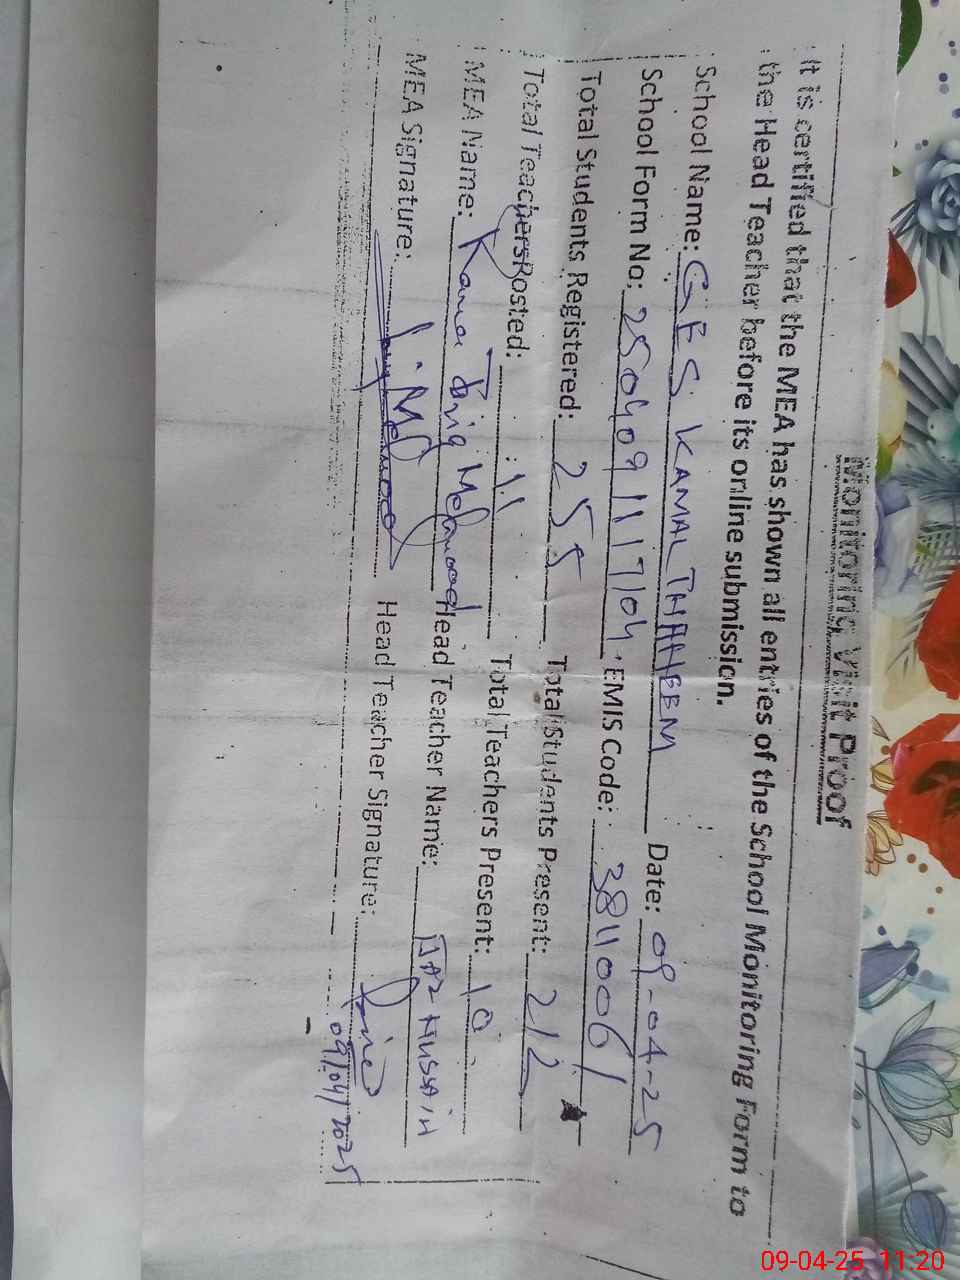 Monitoring Visit Proof
It is certified that the MEA has shown all entries of the School Monitoring Form to
the Head Teacher before its online submission.
School Name: GES KAMAL THAHEEM Date: 09-04-25
School Form No: 250409111704 EMIS Code: 38110061
Total Students Registered: 255 Total Students Present: 212
Total Teachers Posted: 11 Total Teachers Present: 10
MEA Name: Tariq Mehmood Head Teacher Name: IJAZ HUSSAIN
MEA Signature: Head Teacher Signature:
09/04/2025
09-04-25 11:20